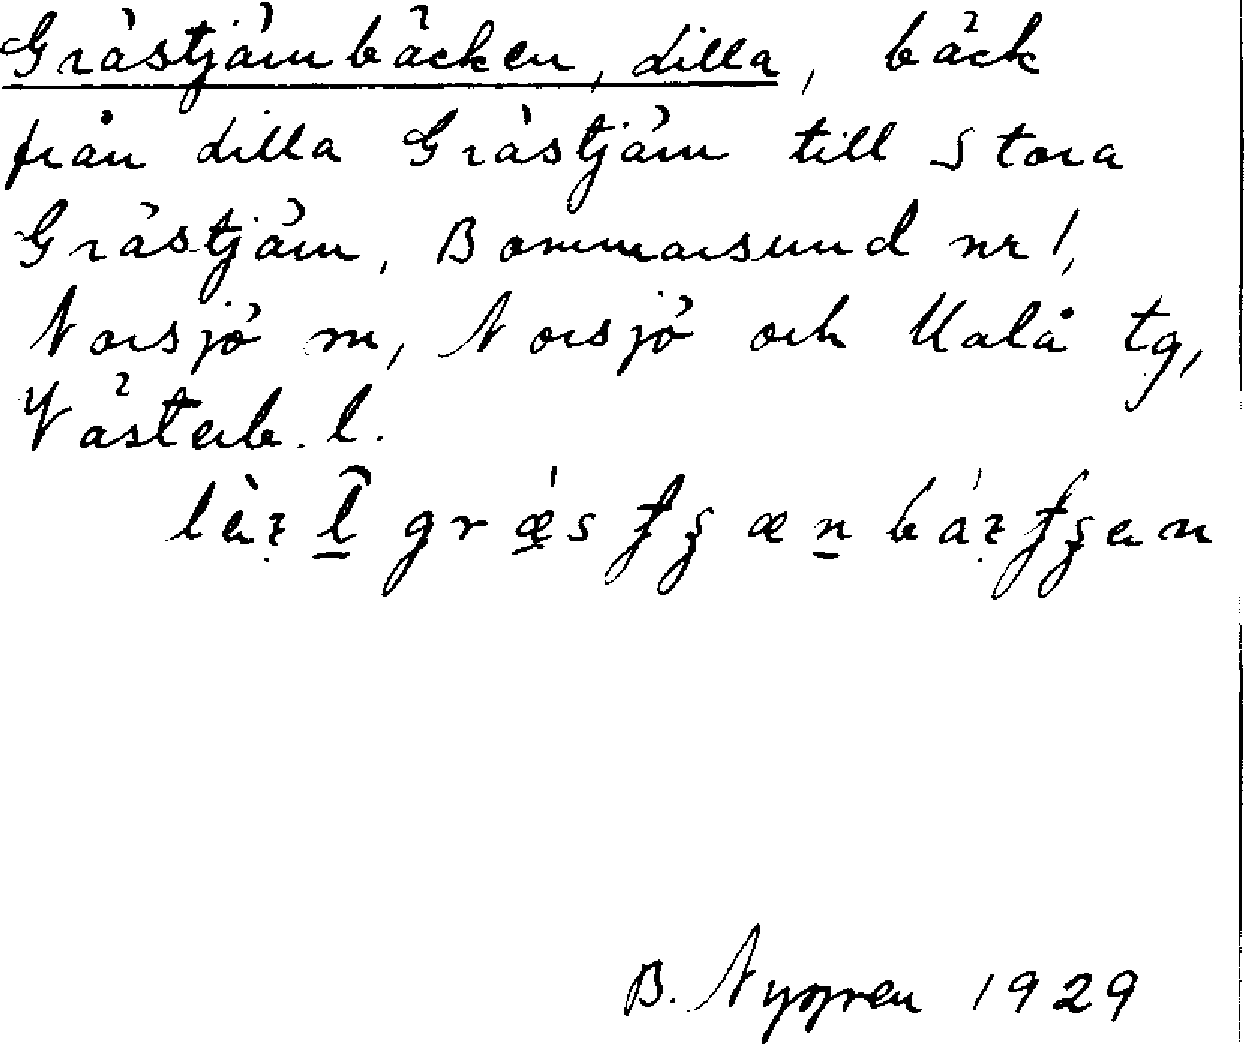 Grästjärnbäcken, Lilla, bäck
från Lilla Grästjärn till Stora
Grästjärn, Bommarsund nr 1,
Norsjö sn, Norsjö och Malå tg,
Västerb. l.
B. Nygren 1929